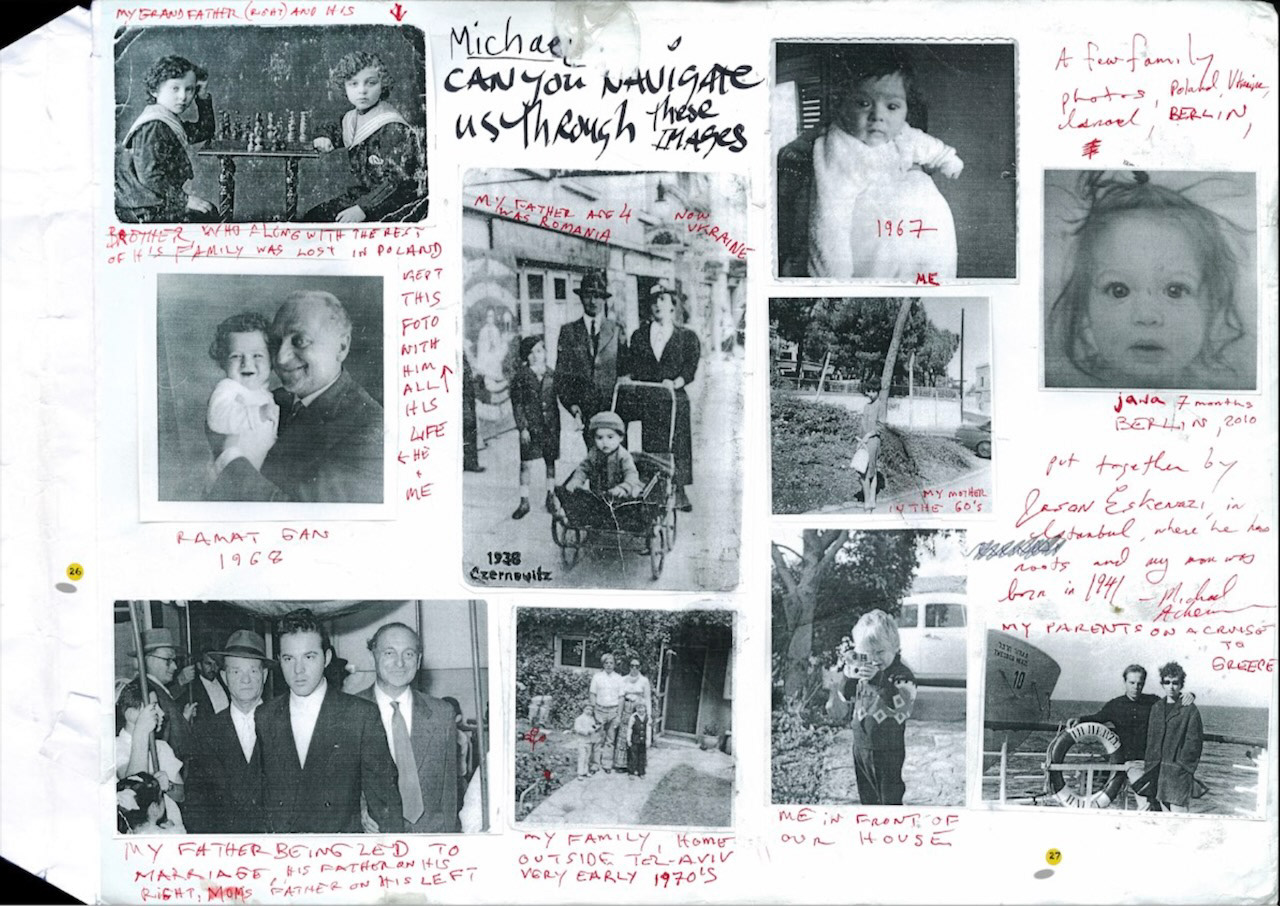 MY GRANDFATHER (RIGHT) AND HIS
BROTHER WHO ALONG WITH THE REST
OF HIS FAMILY WAS LOST IN POLAND
KEPT
THIS
FOTO
WITH
HIM
ALL
HIS
LIFE
HE
+
ME
RAMAT GAN
1968
Michael
CAN YOU NAVIGATE
US THROUGH these
IMAGES
MY FATHER AGE 4
WAS ROMANIA
NOW
UKRAINE
1938
Czernowitz
MY FATHER BEING LED TO
MARRIAGE, HIS FATHER ON HIS
RIGHT, MOMS FATHER ON HIS LEFT
MY FAMILY, HOME
OUTSIDE TEL-AVIV
VERY EARLY 1970'S
1967
ME
MY MOTHER
IN THE 60'S
ME IN FRONT OF
OUR HOUSE
A few family
photos, Poland, Ukraine,
Israel, BERLIN,
jana 7 months
BERLIN, 2010
put together by
Jason Eskenazi, in
Istanbul, where he has
roots and my mom was
born in 1941 - Michael
MY PARENTS ON A CRUISE
TO
GREECE
10
26
27